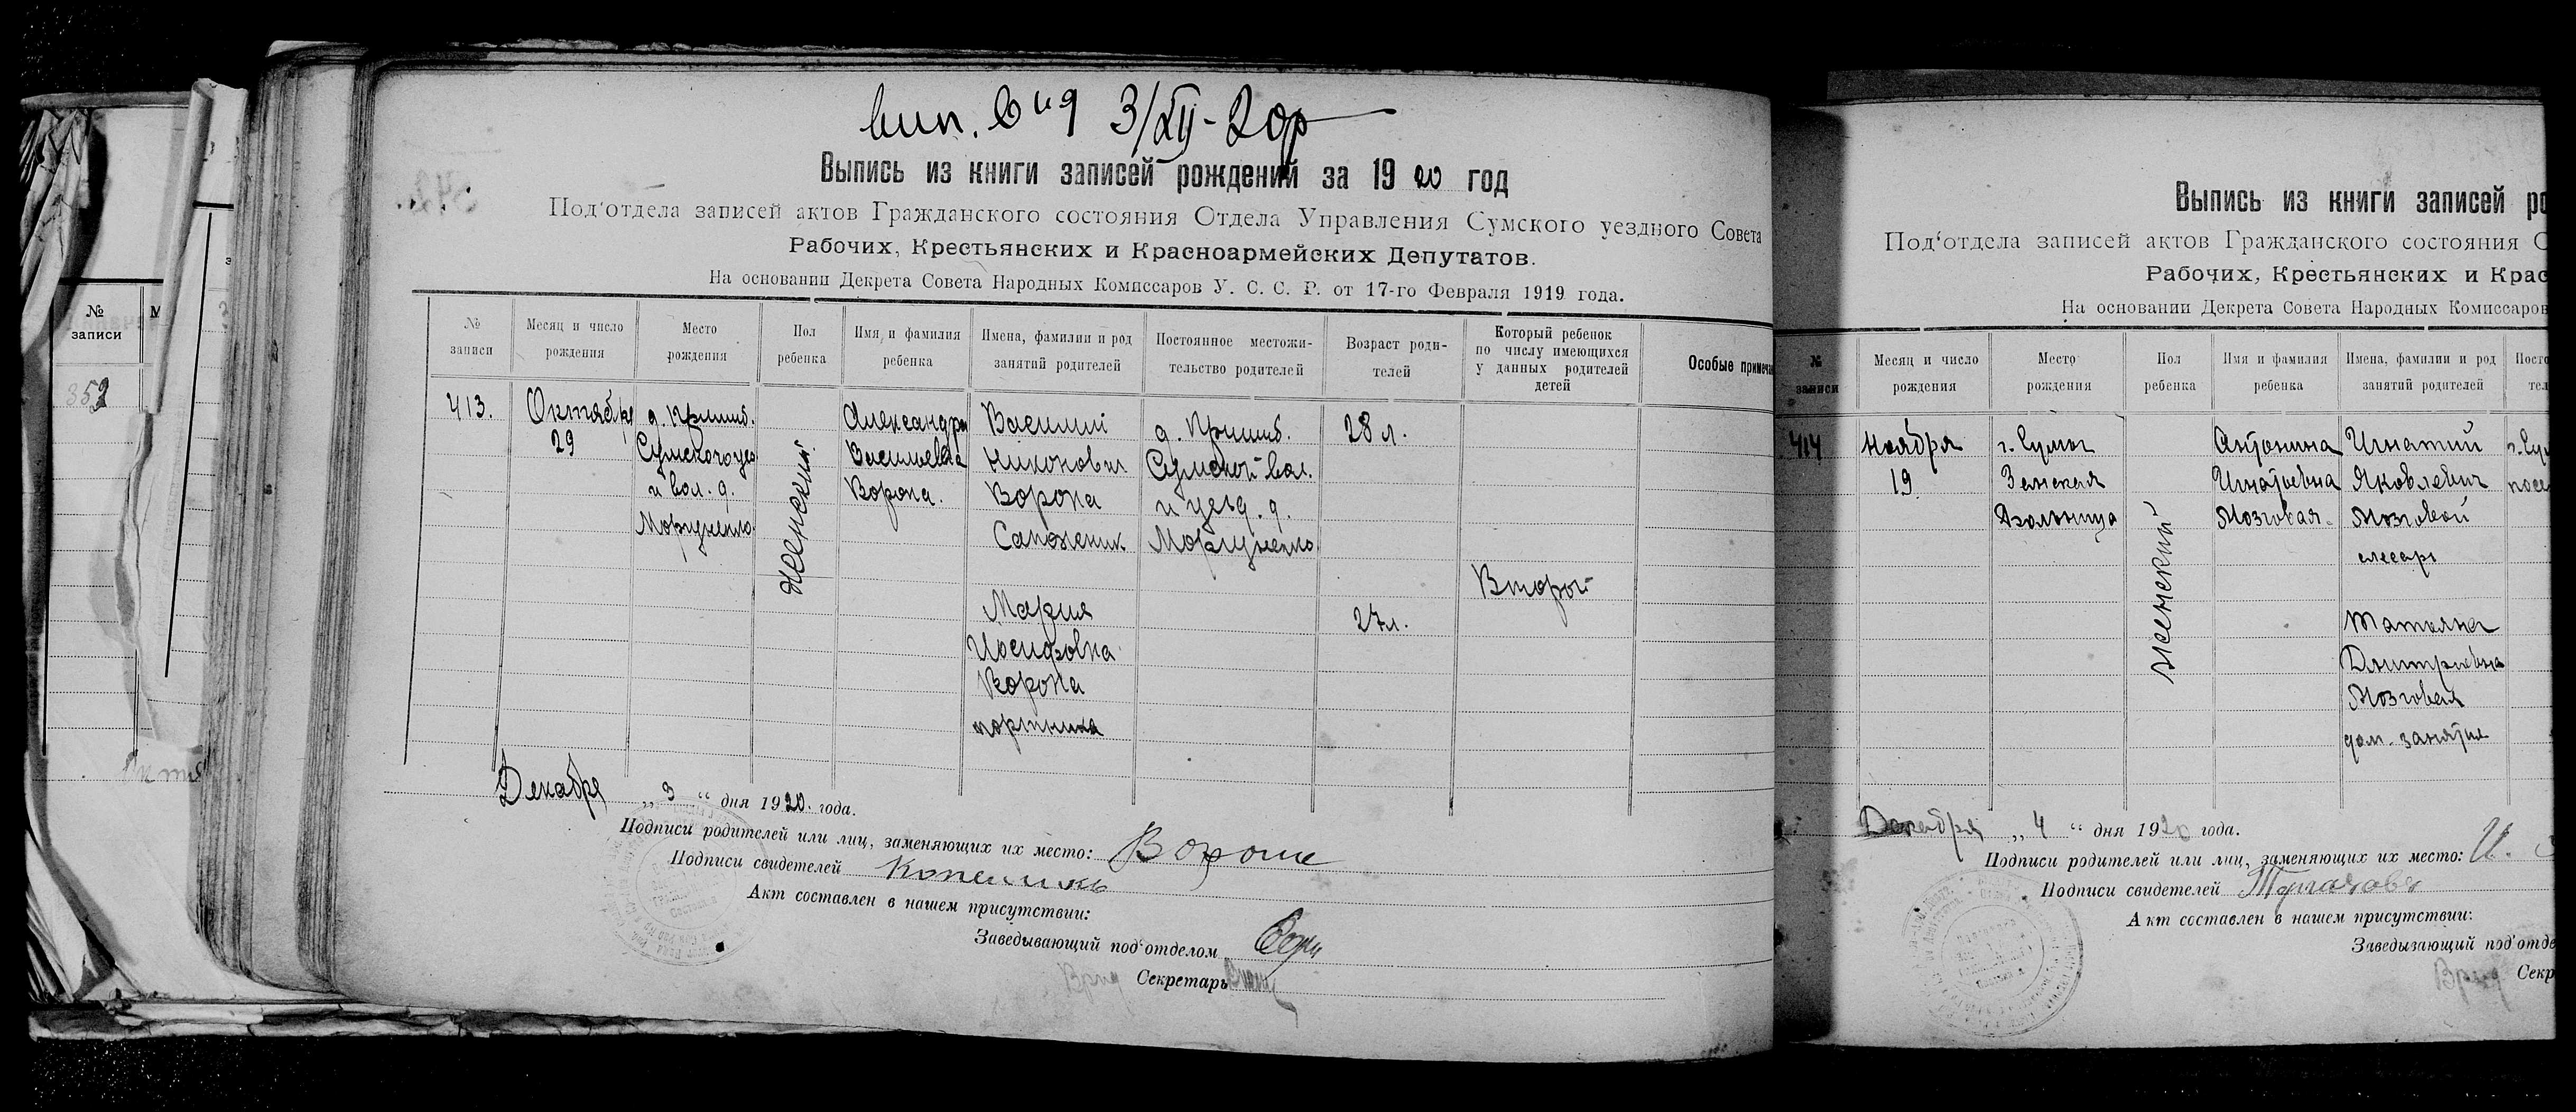 вип. 3/XII-20р
Выпись из книги записей рождений за 1920 год
Под'отдела записей актов Гражданского состояния Отдела Управления Сумского уездного Совета
Рабочих, Крестьянских и Красноармейских Депутатов.
На основании Декрета Совета Народных Комиссаров У. С. С. Р. от 17-го Февраля 1919 года.
№ записи
Месяц и число рождения
Место рождения
Пол ребенка
Имя, и фамилия ребенка
Имена, фамилии и род занятий родителей
Постоянное местожительство родителей
Возраст родителей
Который ребенок по числу имеющихся у данных родителей детей
Особые примеча
413.
Октября
29
д.
Сумского
и вол. д.
женский
Александра
Васильевна
Ворона.
Василий
Никонович
Ворона
Сапожник
Мария
Иосифовна
Ворона
портниха
д.
Сумской вол.
и уезд. д.
28 л.
27 л.
Второй
Декабря „3“ дня 1920 года.
Подписи родителей или лиц, заменяющих их место:
Подписи свидетелей
Акт составлен в нашем присутствии:
Заведывающий под'отделом
Врид Секретарь
№ записи
353
Выпись из книги записей ро
Под'отдела записей актов Гражданского состояния О
Рабочих, Крестьянских и Крас
На основании Декрета Совета Народных Комиссаров
№ записи
Месяц и число рождения
Место рождения
Пол ребенка
Имя и фамилия ребенка
Имена, фамилии и род занятий родителей
Посто
тел
414
Ноября
19
г. Сумы
Земская
Больница
женский
Антонина
Игнатьевна
Мозговая
Игнатий
Яковлевич
Мозговой
слесарь
Татьяна
Дмитриевна
Мозговая
дом. занятия
Декабря „4“ дня 1920 года.
Подписи родителей или лиц, заменяющих их место: И.
Подписи свидетелей
Акт составлен в нашем присутствии:
Заведывающий под'отде
Врид Секр